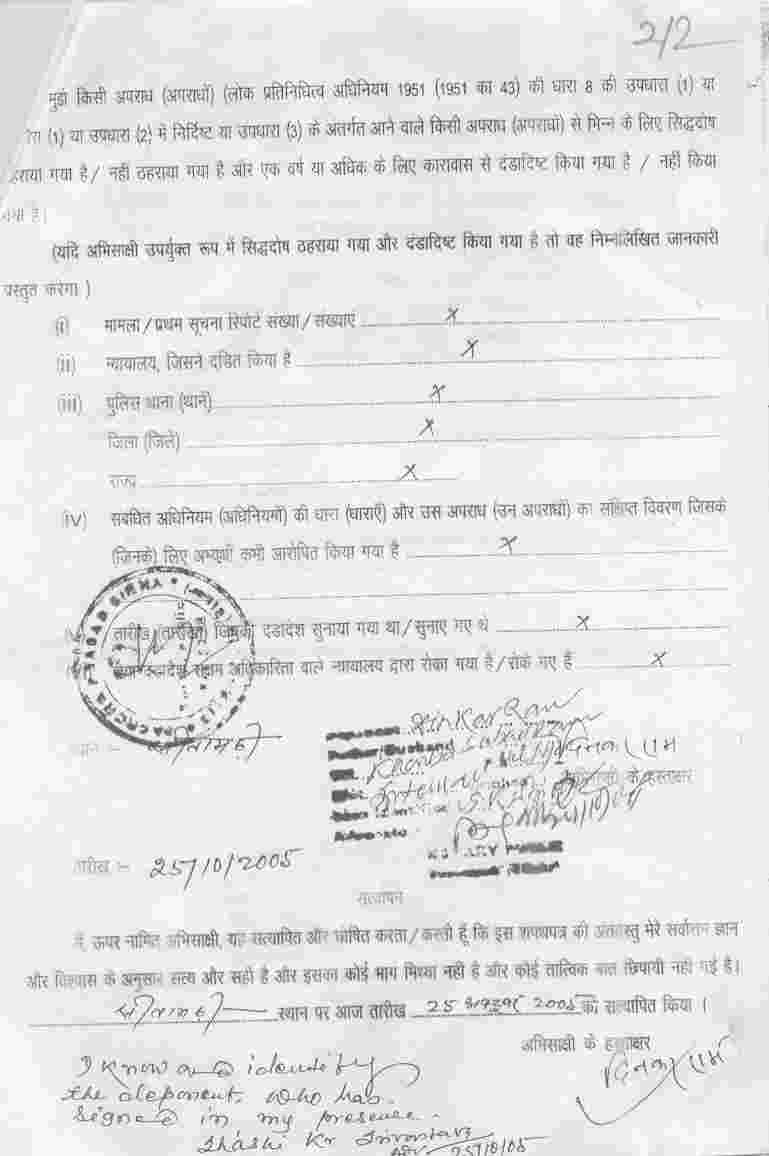 2/2
मुझे किसी अपराध (अपराधों) (लोक प्रतिनिधित्व अधिनियम 1951 (1951 का 43) की धारा 8 की उपधारा (1) या
(1) या उपधारा (2) में निर्दिष्ट या उपधारा (3) के अंतर्गत आने वाले किसी अपराध (अपराधों) से भिन्न के लिए सिद्धदोष
ठहराया गया है / नहीं ठहराया गया है और एक वर्ष या अधिक के लिए कारावास से दंडादिष्ट किया गया है / नहीं किया
गया है।
(यदि अभिसाक्षी उपर्युक्त रूप में सिद्धदोष ठहराया गया और दंडादिष्ट किया गया है तो वह निम्नलिखित जानकारी
प्रस्तुत करेगा )
(i) मामला / प्रथम सूचना रिपोर्ट संख्या / संख्याएं x
(ii) न्यायालय, जिसने दंडित किया है x
(iii) पुलिस थाना (थाने) x
जिला (जिले) x
राज्य x
(iv) संबंधित अधिनियम (अधिनियमों) की धारा (धाराएँ) और उस अपराध (उन अपराधों) का संक्षिप्त विवरण जिसके
(जिनके) लिए अभ्यर्थी कभी आरोपित किया गया है x
तारीख (तारीखें) जिसको दंडादेश सुनाया गया था / सुनाए गए थे x
सक्षम अधिकारिता वाले न्यायालय द्वारा रोका गया है / रोके गए हैं x
स्थान :- सीतामढ़ी
Dinkar Ram
दिनकर राम
के हस्ताक्षर
Advocate
NOTARY PUBLIC
तारीख :- 25/10/2005
सत्यापन
मैं, ऊपर नामित अभिसाक्षी, यह सत्यापित और घोषित करता / करती हूँ कि इस शपथपत्र की अंतर्वस्तु मेरे सर्वोत्तम ज्ञान
और विश्वास के अनुसार सत्य और सही है और इसका कोई भाग मिथ्या नहीं है और कोई तात्विक बात छिपायी नहीं गई है।
सीतामढ़ी स्थान पर आज तारीख 25 अक्टूबर 2005 को सत्यापित किया ।
अभिसाक्षी के हस्ताक्षर
दिनकर राम
I know and identify
the deponent. who has.
signed in my presence.
Shashi Kr
25/10/05